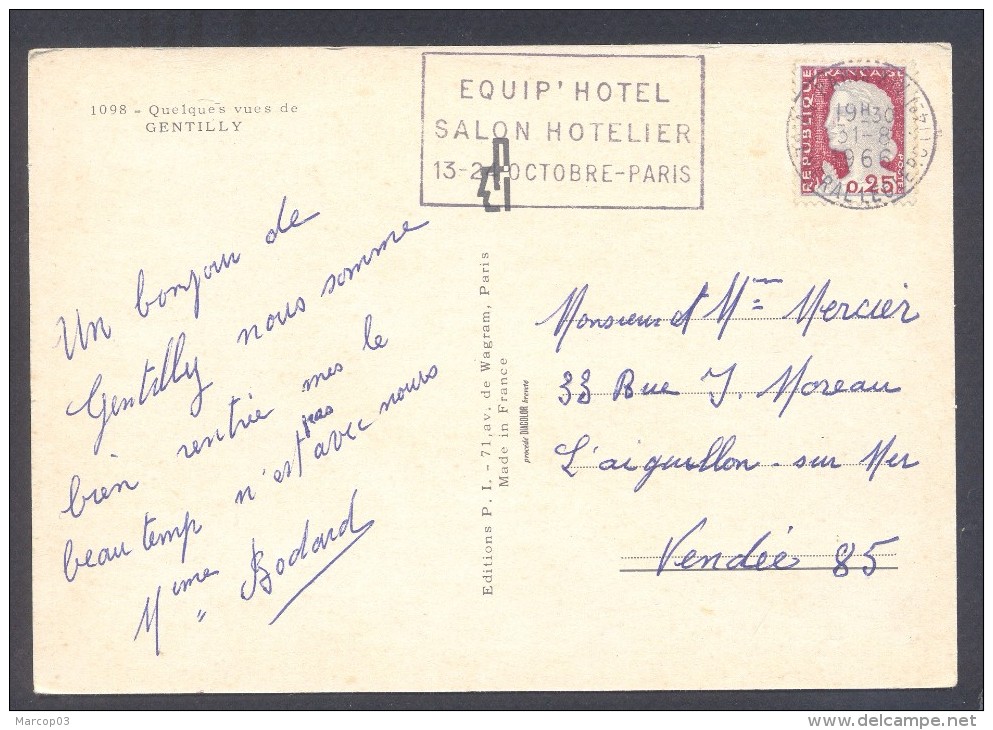 1098 - Quelques vues de
GENTILLY
EQUIP' HOTEL
SALON HOTELIER
13-24 OCTOBRE-PARIS
REPUBLIQUE
FRANÇAISE
POSTES
0,25
19H30
31-8
1966
Un bonjour de
Gentilly nous somme
bien rentrée mes le
beau temp n'est pas avec nours
Mme Bodard
Editions P. I. - 71, av. de Wagram, Paris
Made in France
procédé DIACOLOR breveté
Monsieur et Mme Mercier
33 Rue J. Moreau
L'aiguillon-sur Mer
Vendée 85
Marcop03